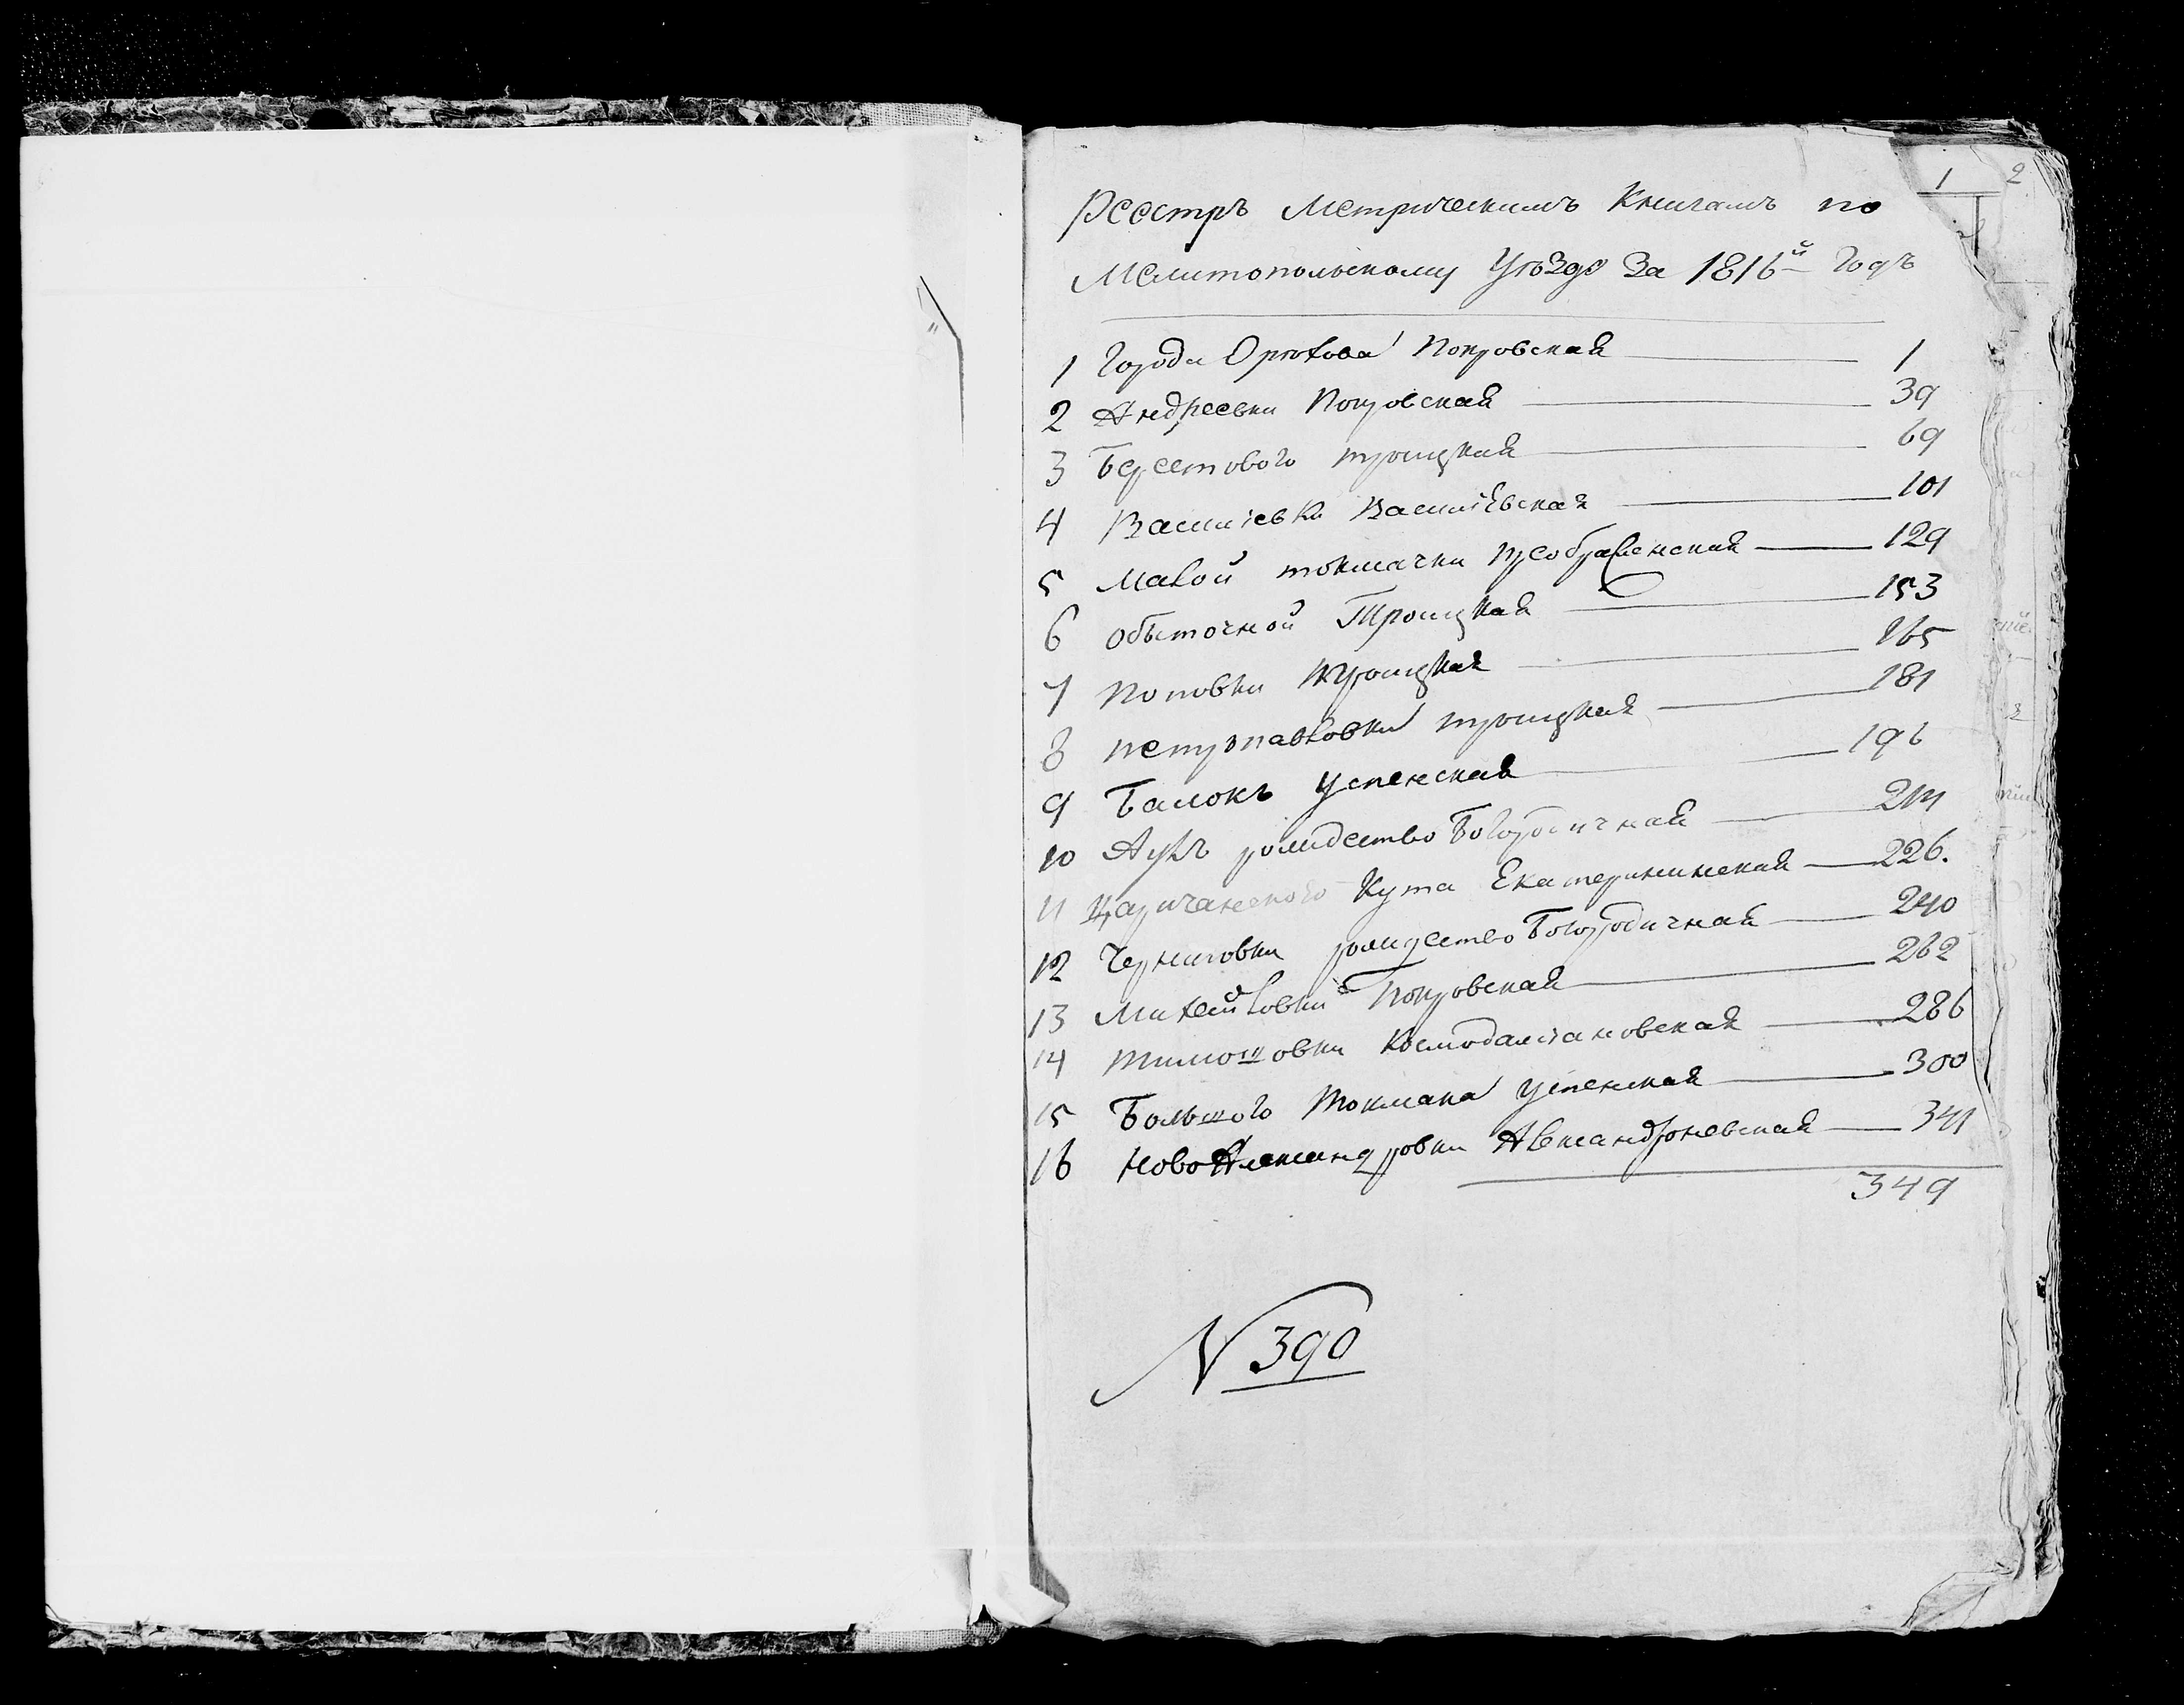 1 2
Реестръ Метрическимъ Книгамъ по
Мелитопольскому Уѣзду За 1816й Годъ
1 Города Орѣхова Покровская 1
2 Андреевки Покровская 39
3 Берестового троицкая 69
4 Василіевки Василіевская 101
5 Малой токмачки преображенская 129
6 Обыточной Троицкая 153
7 Поповки Троицкая 165
8 петропавловки троицкая 181
9 Балокъ Успенская 196
10 рождество Богородичная 214
11 Царичанского Кута Екатерининская 226.
12 Черниговки рождество Богородичная 240
13 Михайловки Покровская 262
14 тимошовки Космодаміановская 286
15 Большого Токмака Успенская 300
16 Ново Александровки Александроневская 341
349
N 390